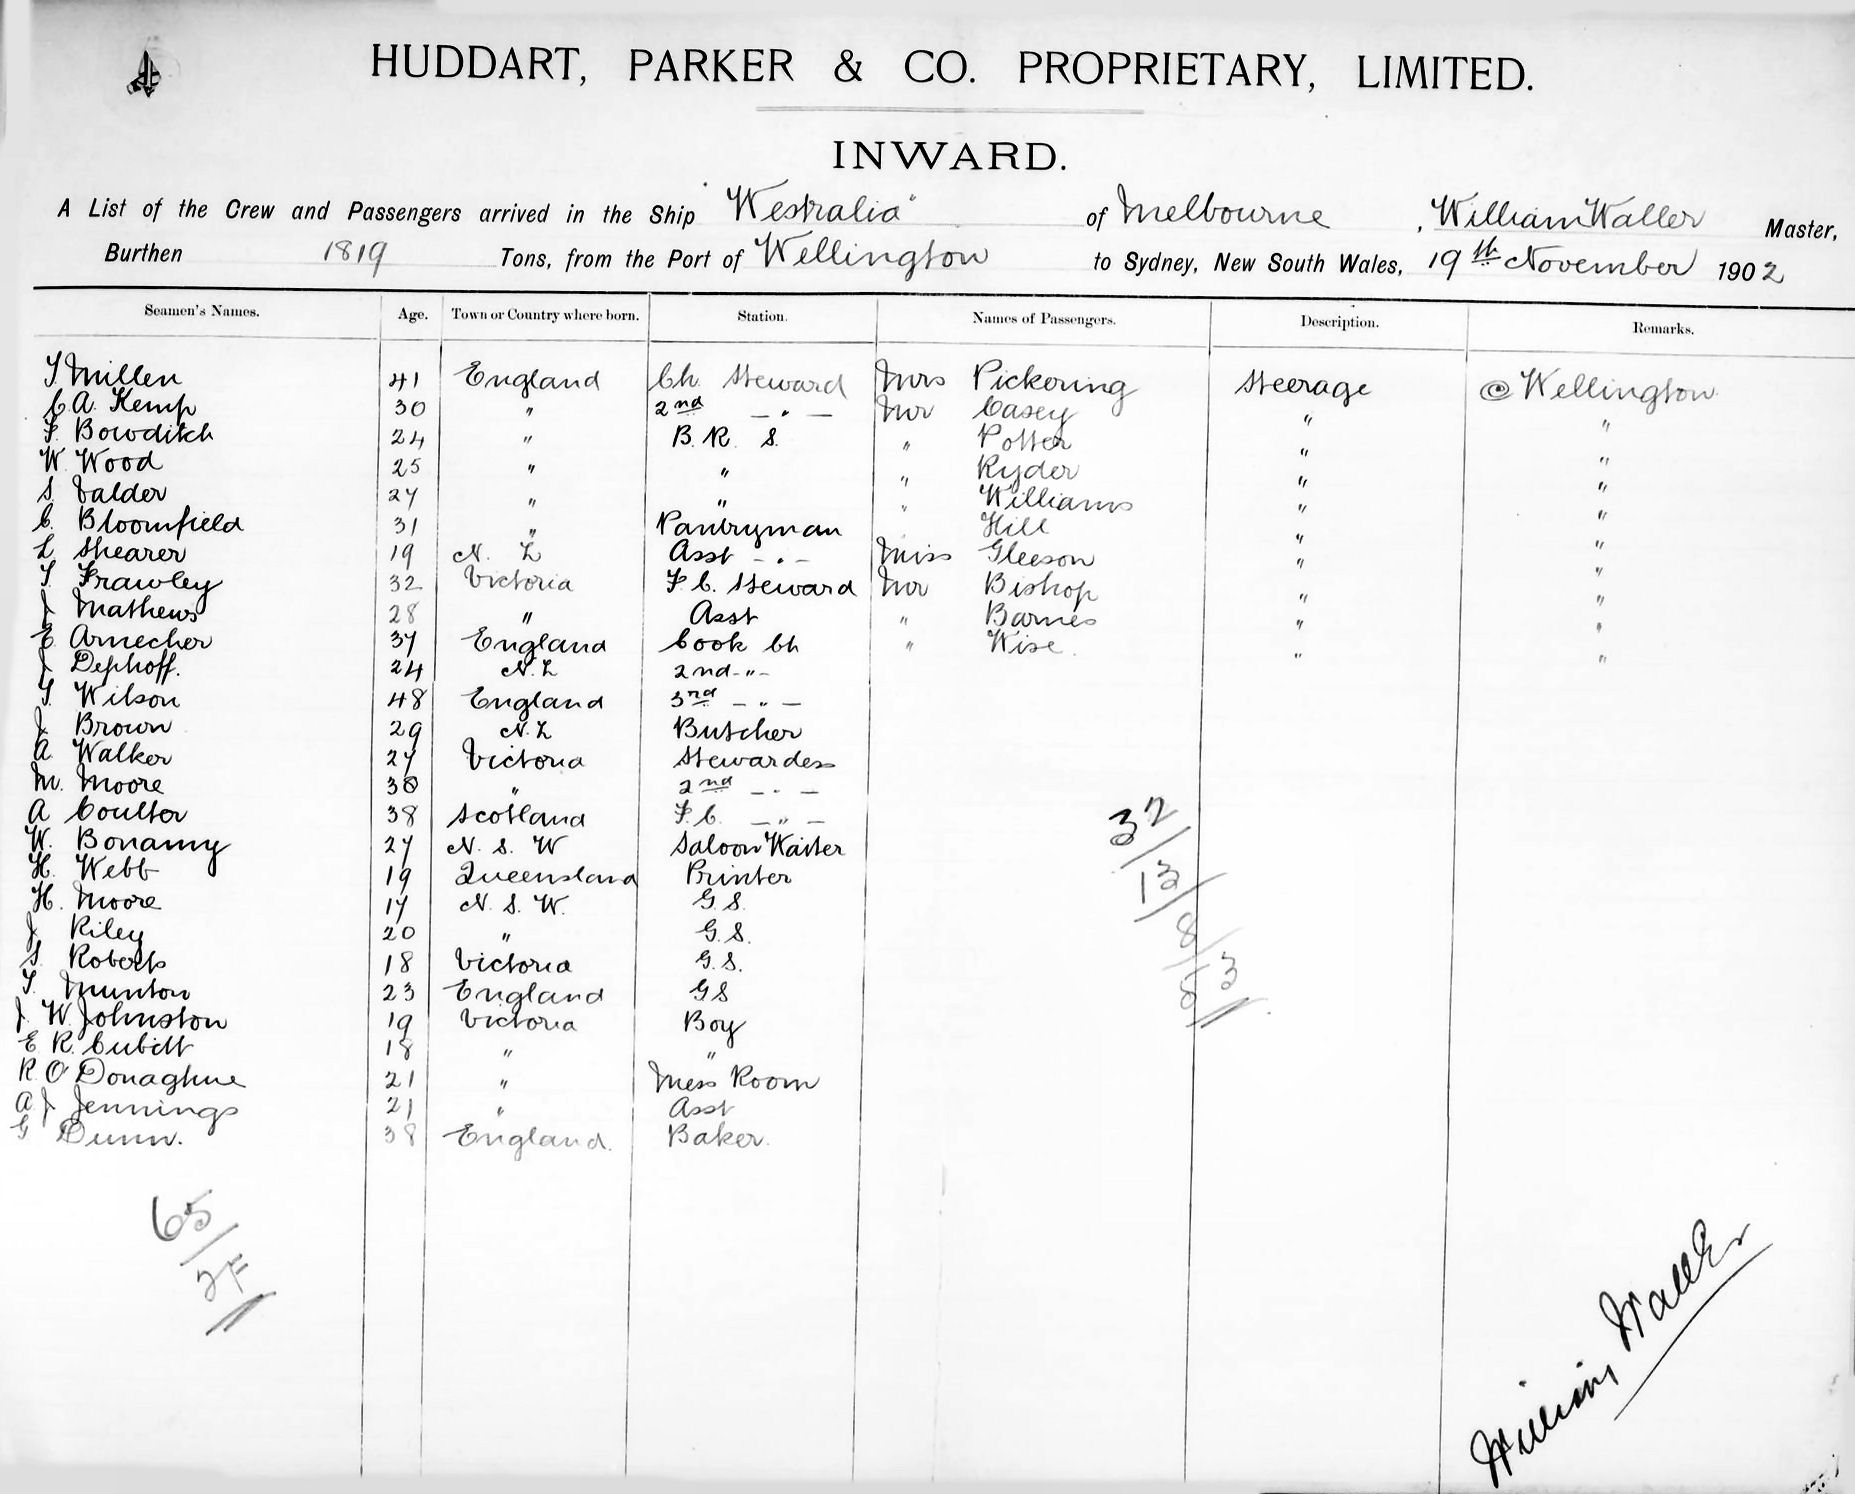 HUDDART, PARKER & CO. PROPRIETARY, LIMITED.
INWARD.
A List of the Crew and Passengers arrived in the Ship "Westralia" of Melbourne, William Waller Master,
Burthen 1819 Tons, from the Port of Wellington to Sydney, New South Wales, 19th November 1902
Seamen's Names. Age. Town or Country where born. Station. Names of Passengers. Description. Remarks.
T Millen 41 England Ch. Steward Mrs Pickering Steerage @ Wellington
C. A. Kemp 30 " 2nd - " - Mr Casey " "
F. Bowditch 24 " B. R. S. " Potter " "
W. Wood 25 " " " Ryder " "
S. Valder 27 " " " Williams " "
C. Bloomfield 31 " Pantryman Hill " "
L. Shearer 19 N. Z Asst - " - Miss Gleeson " "
T. Frawley 32 Victoria F. C. Steward Mr Bishop " "
J Mathews 28 " Asst " Barnes " "
E Arnecher 37 England Cook Ch " Wise. " "
J Dephoff. 24 N. Z 2nd - " -
T. Wilson 48 England 3rd - " -
J. Brown 29 N. Z Butcher
A Walker 27 Victoria Stewardess
M. Moore 38 " 2nd - " -
A Coulter 38 Scotland F. C. - " -
W. Bonamy 27 N. S. W Saloon Waiter
H. Webb 19 Queensland Printer
H. Moore 17 N. S. W. G. S.
J. Riley 20 " G. S.
S. Roberts 18 Victoria G. S.
T. Munton 23 England G S
J. W. Johnston 19 Victoria Boy
E R. Cubitt 18 " "
R. O'Donaghue 21 " Mess Room
A J Jennings 21 " Asst
G Dunn. 38 England. Baker.
32/13/8/53
65/2F
William Waller